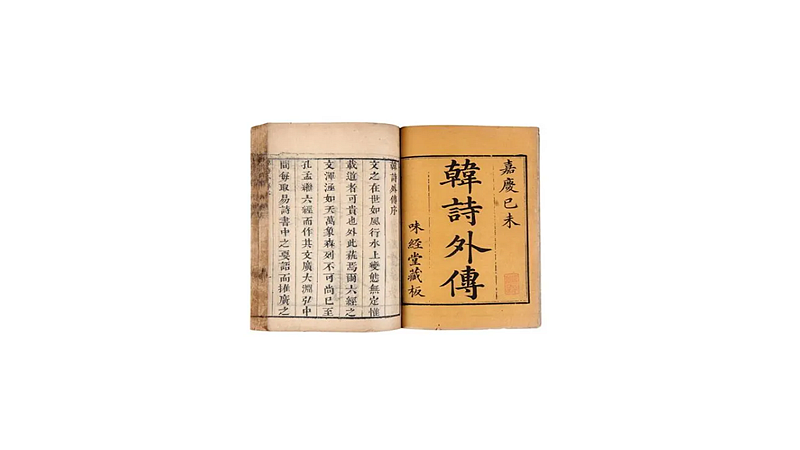 嘉慶己未
韓詩外傳
味經堂藏板
韓詩外傳序
文之在世如風行水上變勉無定惟
載道者可貴也外此蓺焉爾六經之
文渾渾如天萬象森列不可尚已至
孔孟繼六經而作其文廣大淵弘中
間每取易詩書中之要語而推廣之